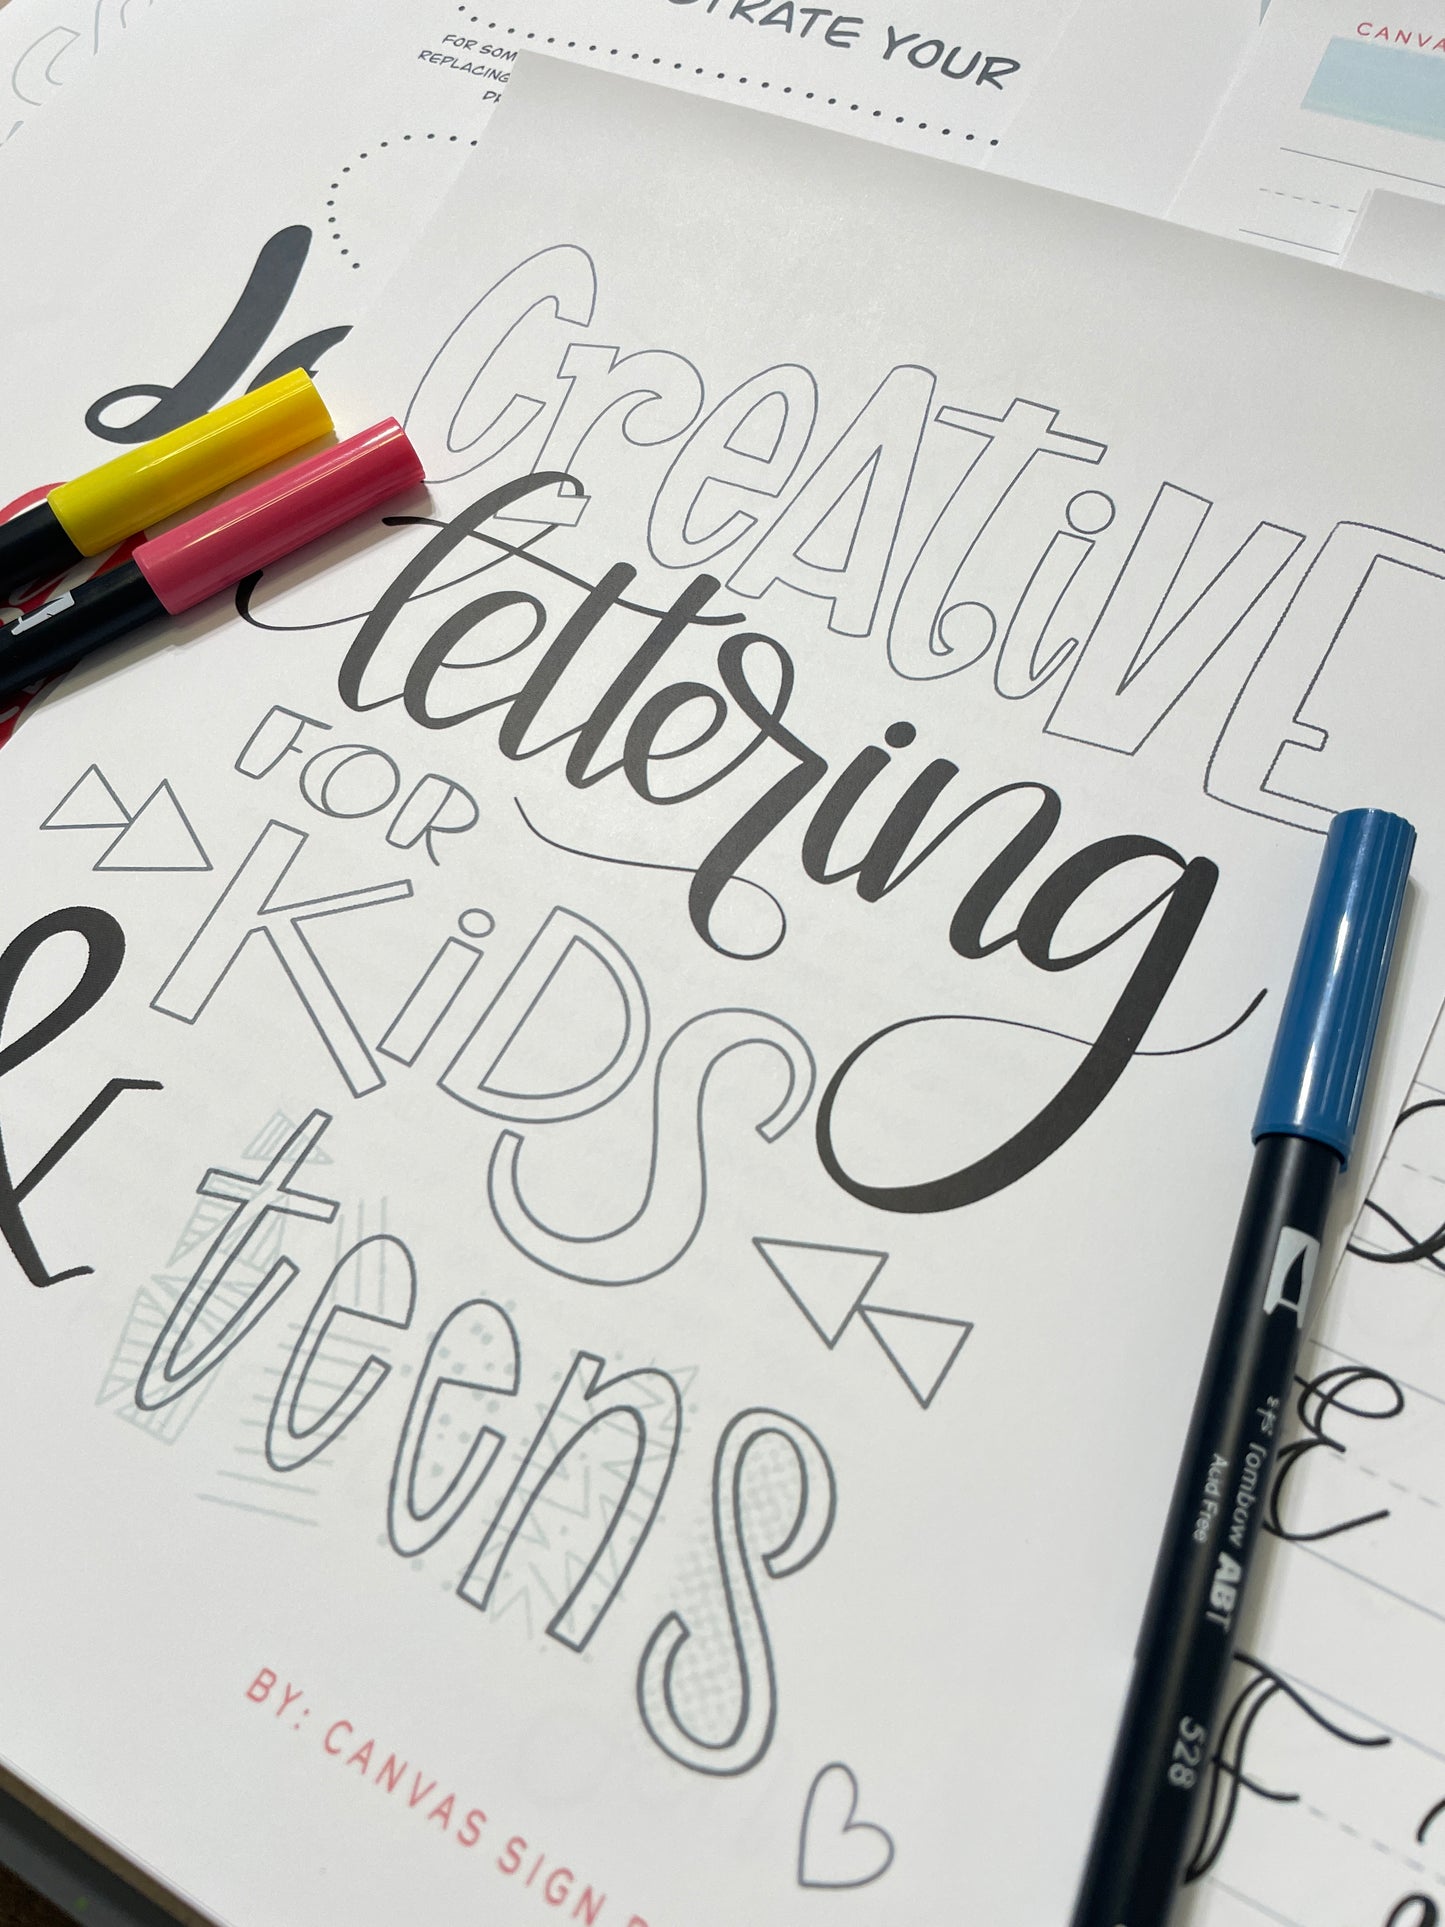 YOUR
FOR
REPLACING
CANVA
CreATiVE
lettering
FOR
KiDS
teens
BY: CANVAS SIGN
Tombow ABT
Acid Free
528